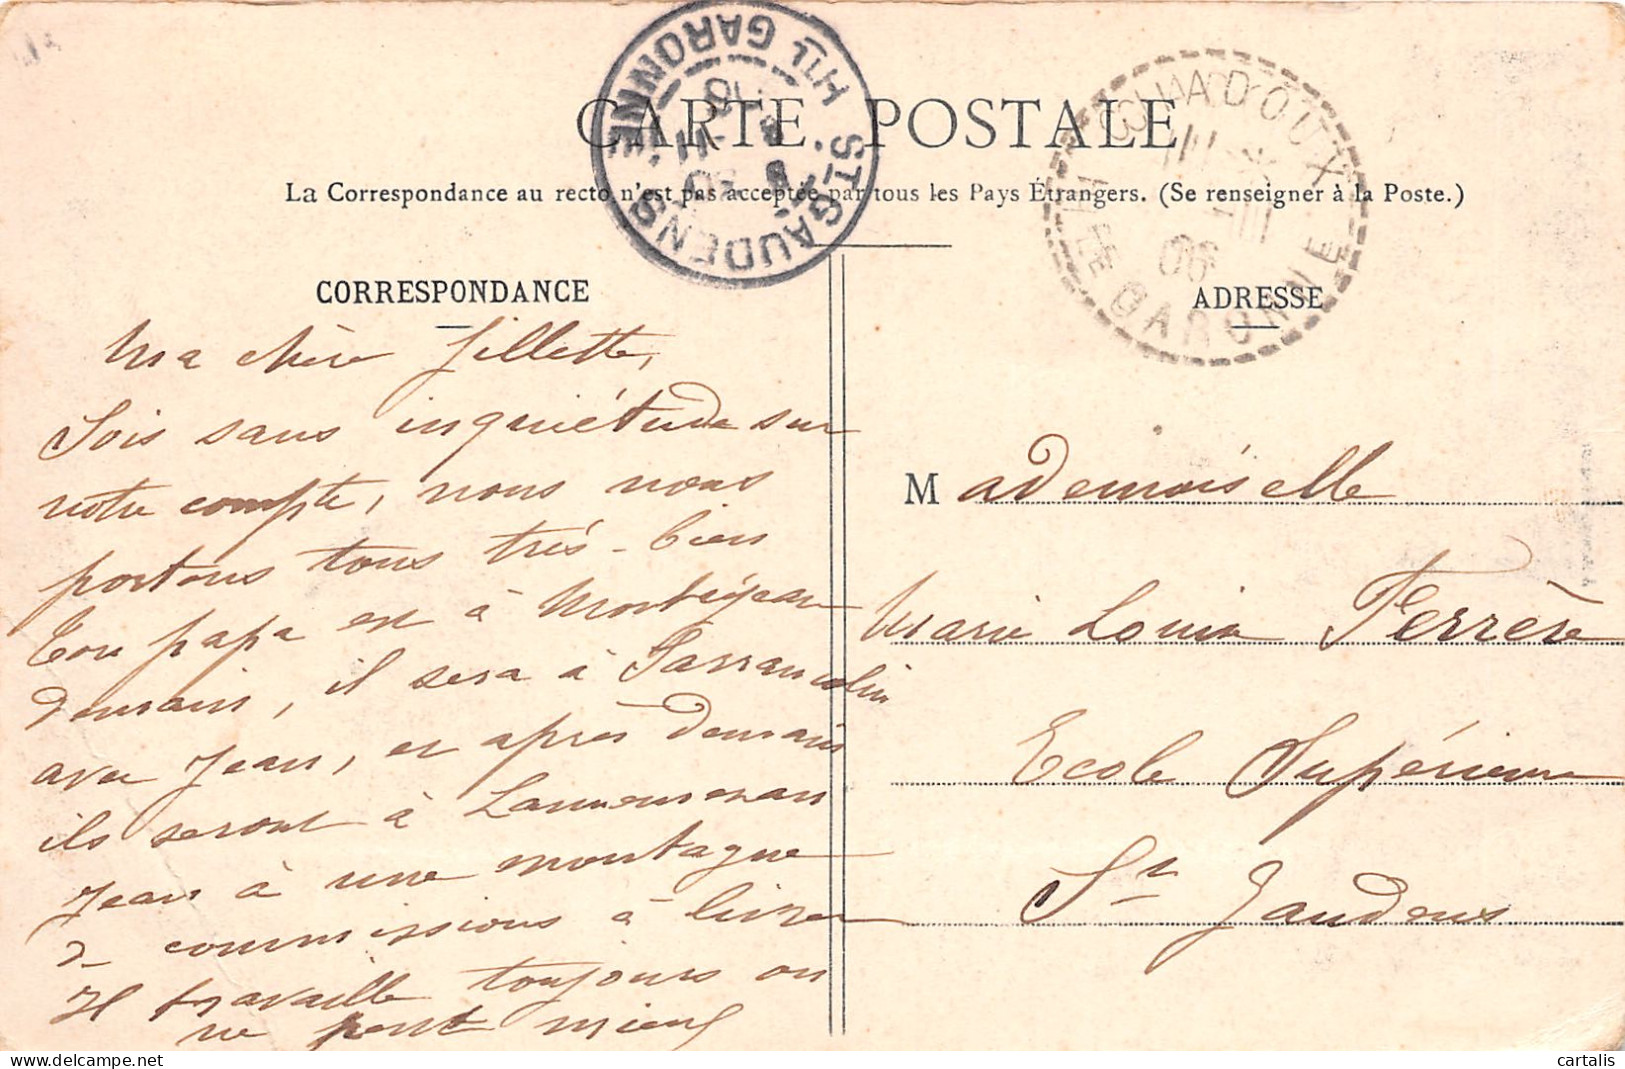 CARTE POSTALE
La Correspondance au recto n'est pas acceptée par tous les Pays Étrangers. (Se renseigner à la Poste.)
ST GAUDENS
HTE GARONNE
06
GARONNE
CORRESPONDANCE
Ma chère fillette,
Sois sans inquiétude sur
notre compte, nous nous
portons tous très-bien
Ton papa est à Montréjeau
demain, il sera à Sarrancolin
avec Jean, et après demain
ils seront à Lannemezan
Jean à une montagne
de commissions à livrer
Il travaille toujours on
ne peut mieux
ADRESSE
Mademoiselle
Marie Louise Ferrère
Ecole Supérieure
St Gaudens
cartalis